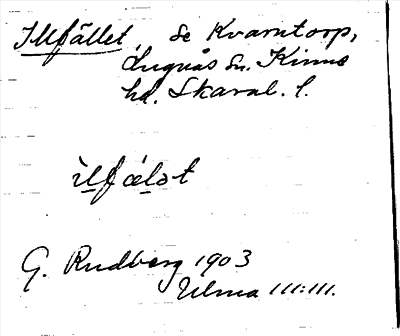 Illfället, se Kvarntorp,
Lugnås sn. Kinne
hd. Skarab. l.
ìlfælət
G. Rudberg 1903
Ulma 111:111.